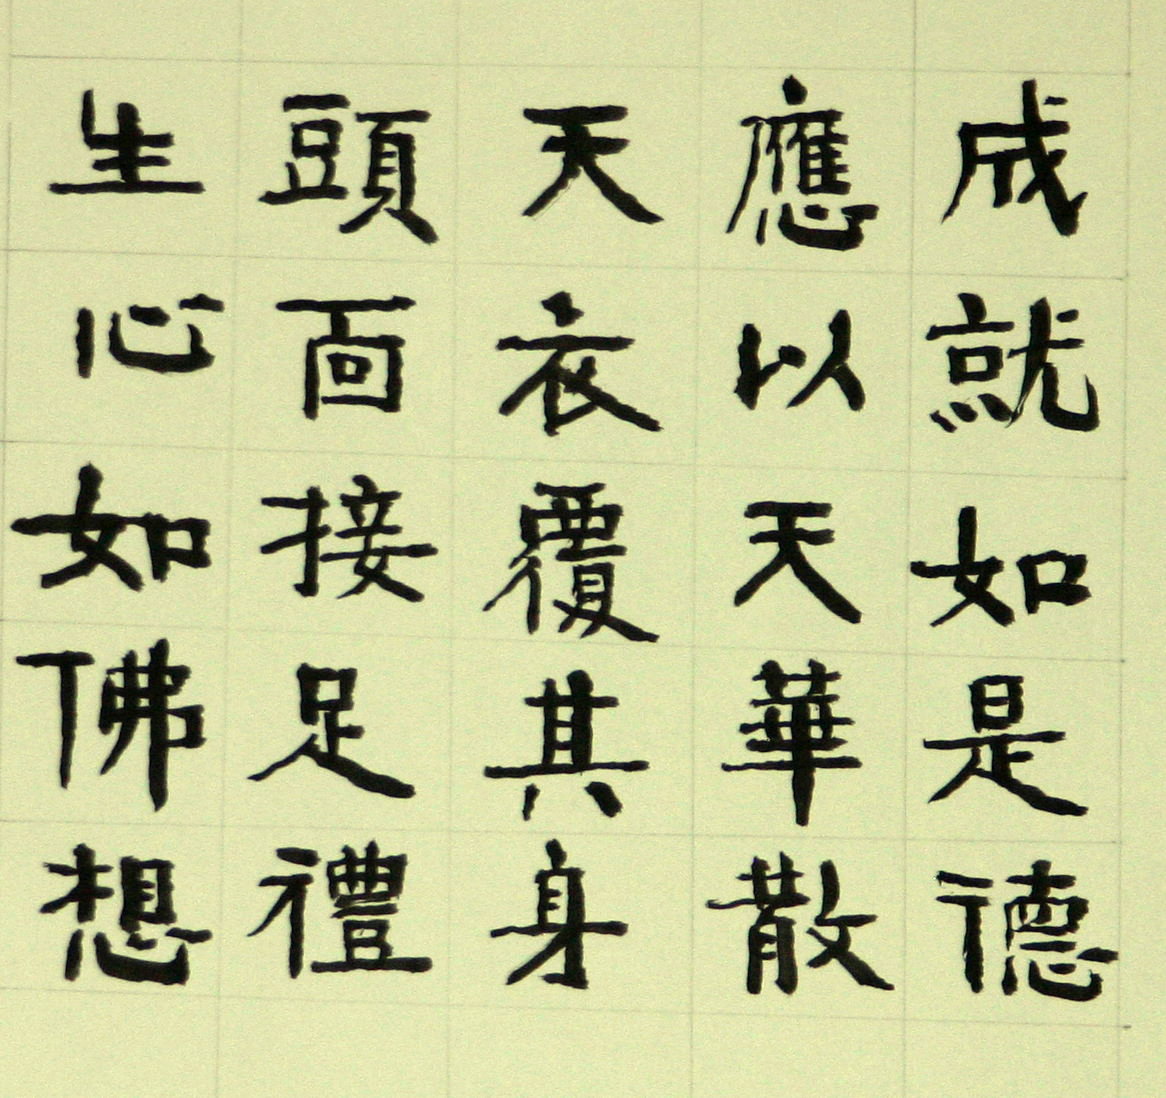 成就如是德
應以天華散
天衣覆其身
頭面接足禮
生心如佛想